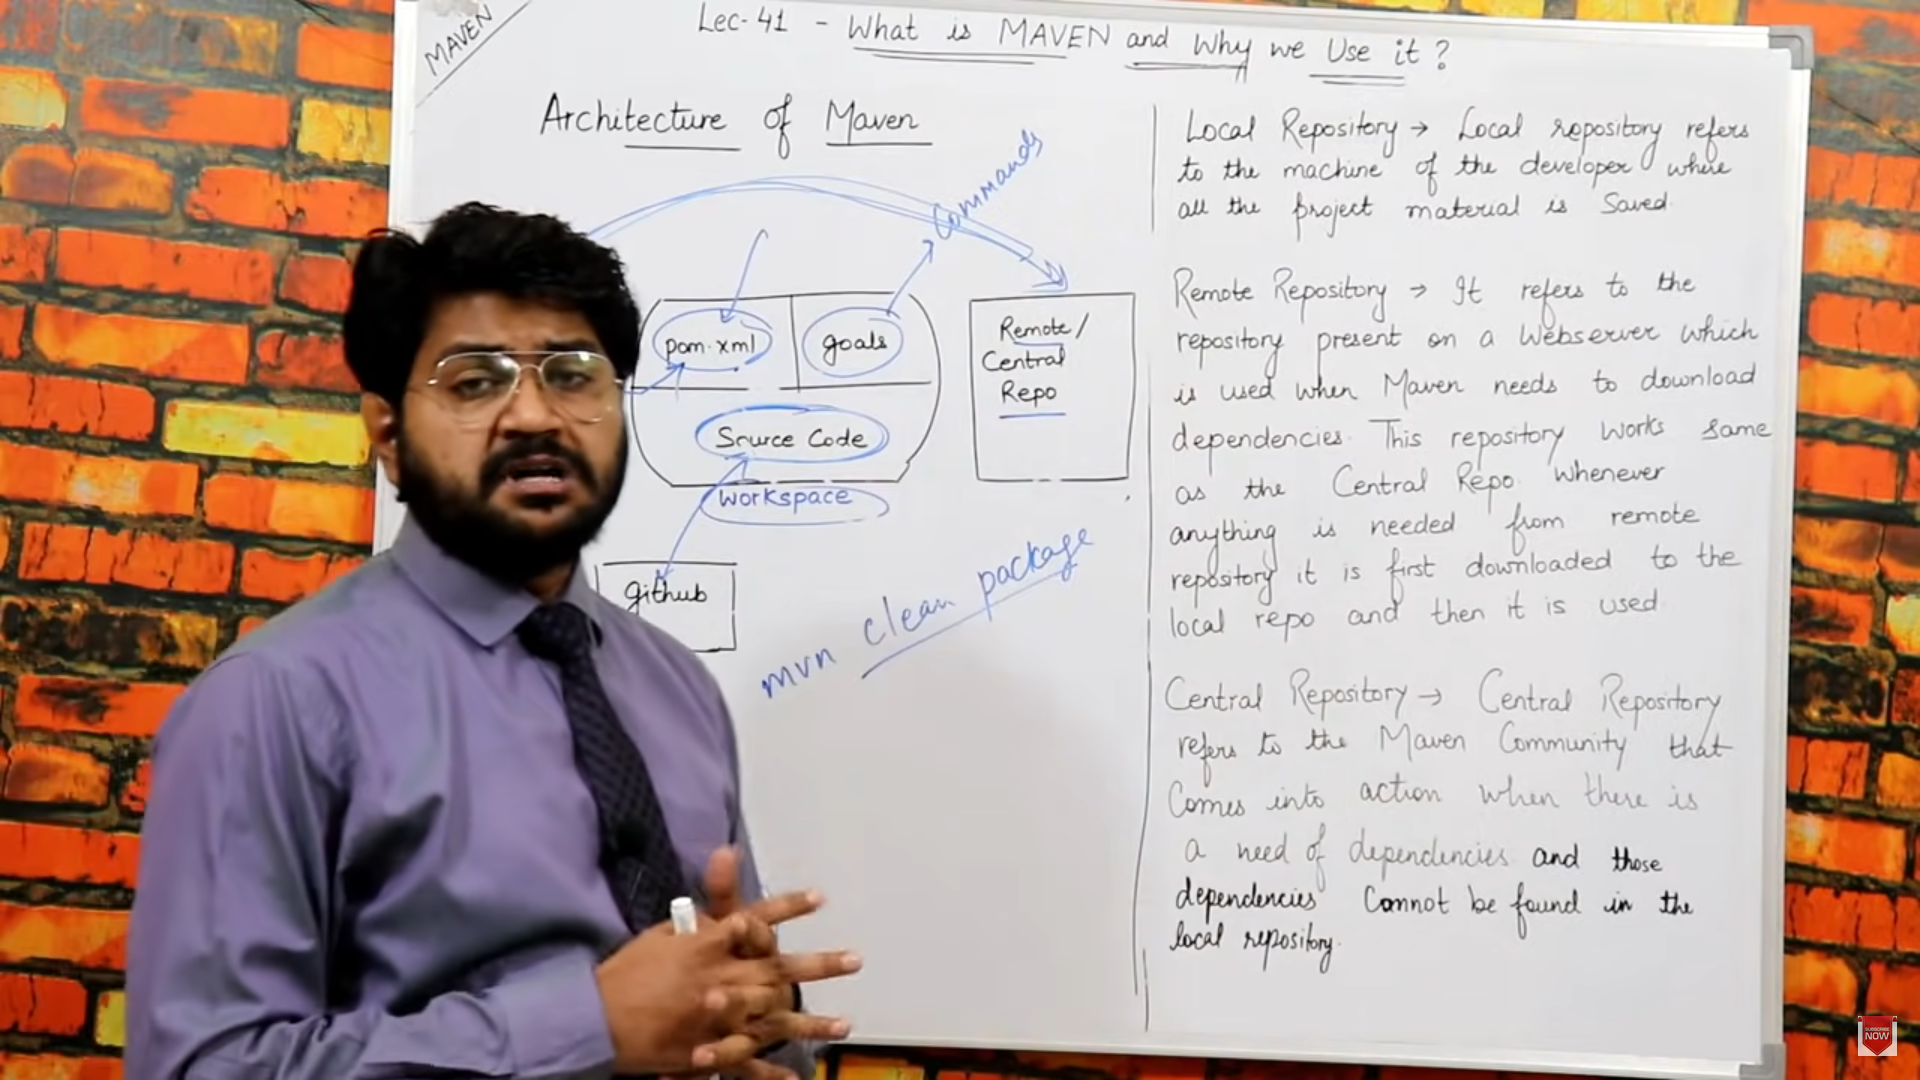 MAVEN
Lec-41 - What is MAVEN and Why we Use it?
Architecture of Maven
Commands
pom.xml
goals
Source Code
workspace
github
Remote/
Central
Repo
mvn clean package
Local Repository → Local repository refers
to the machine of the developer where
all the project material is Saved.
Remote Repository → It refers to the
repository present on a Webserver which
is used when Maven needs to download
dependencies. This repository works same
as the Central Repo. Whenever
anything is needed from remote
repository it is first downloaded to the
local repo and then it is used.
Central Repository → Central Repository
refers to the Maven Community that
Comes into action when there is
a need of dependencies and those
dependencies Cannot be found in the
local repository.
SUBSCRIBE
NOW